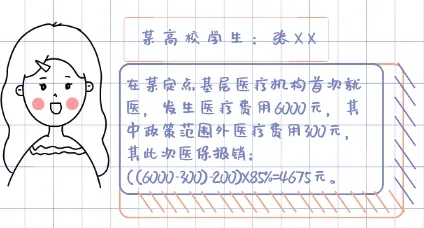 某高校学生：张XX
在某定点基层医疗机构首次就
医，发生医疗费用6000元，其
中政策范围外医疗费用300元，
其此次医保报销：
((6000-300)-200)X85%=4675元。